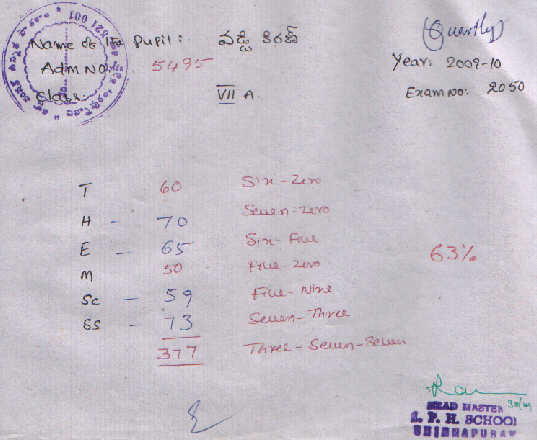 (Quarterly)
Name of the Pupil: వడ్డి కిరణ్
Year: 2009-10
Adm No: 5495
Exam No: 2050
Class: VII A
T 60 Six-Zero
H - 70 Seven-Zero
E - 65 Six-Five
M 50 Five-Zero
63%
Sc - 59 Five-Nine
SS - 73 Seven-Three
377 Three-Seven-Seven
HEAD MASTER
Z. P. H. SCHOOL